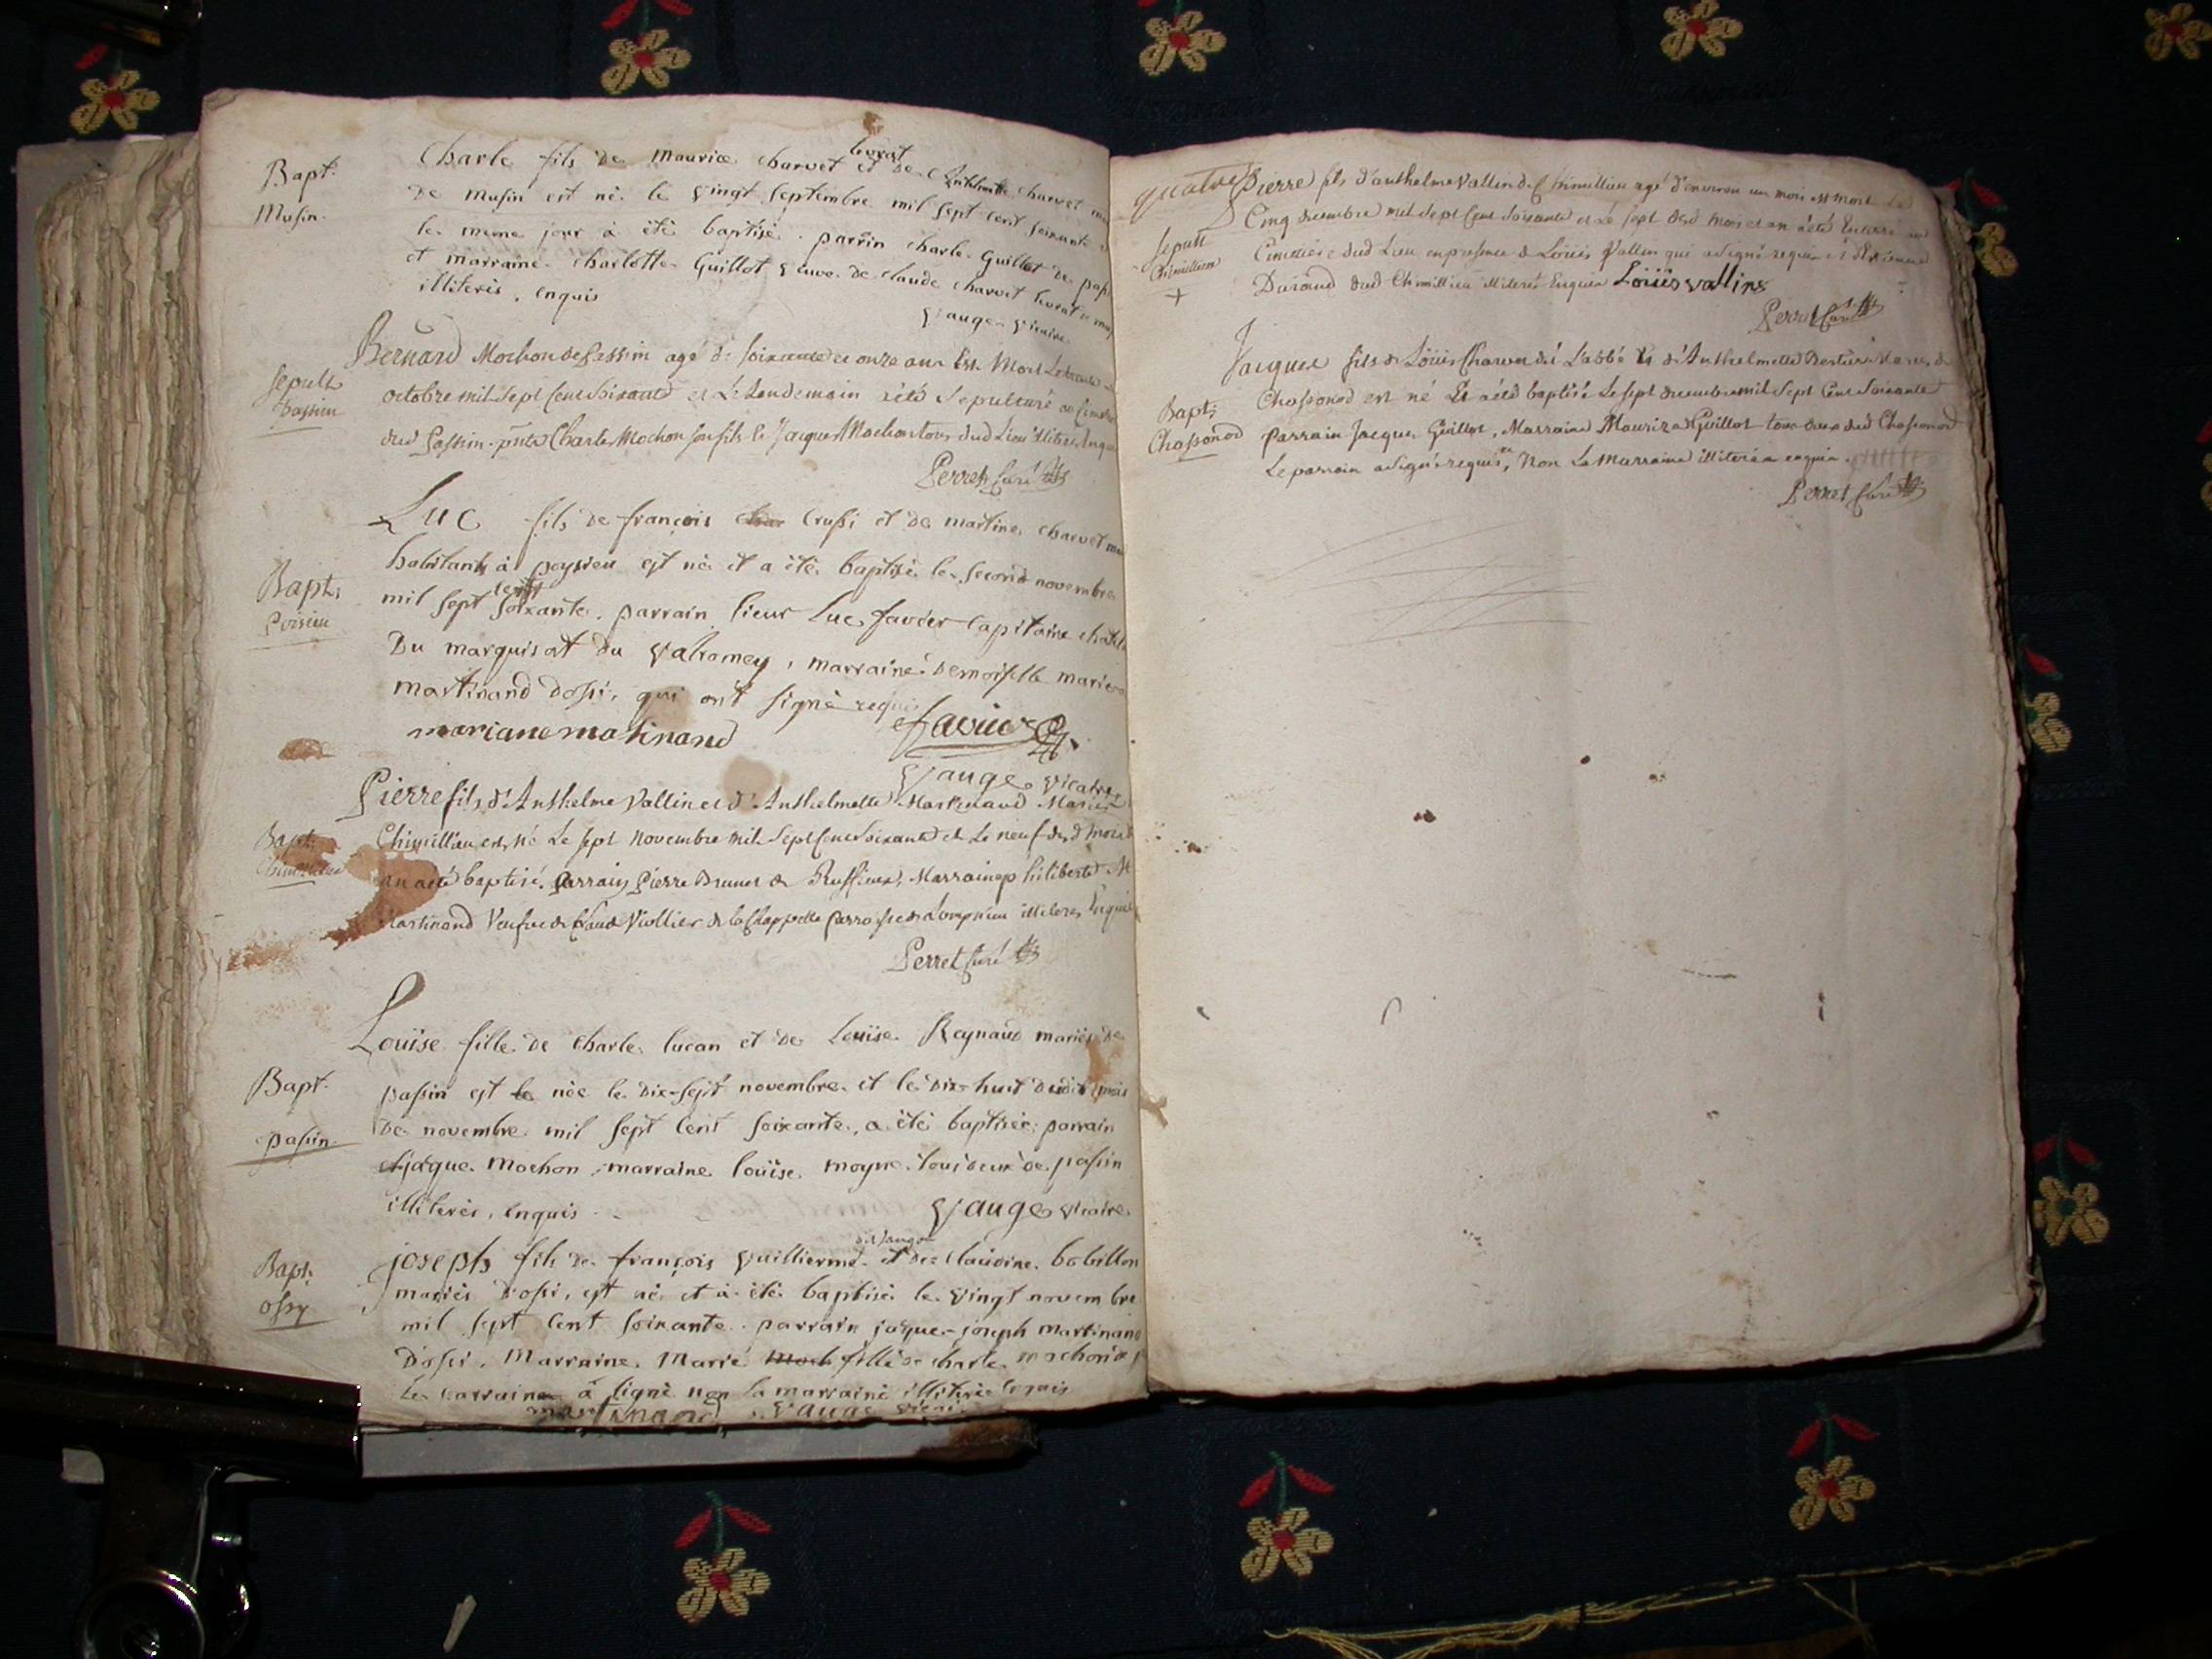 Bapt.
Musin.
Charle fils de Maurice charvet livrat et de Anthelmette charvet
de musin est né le vingt septembre mil sept cent soixante
le meme jour à été baptisé. parrin charle Guillot de
et marraine charlotte Guillot veuve de claude charvet livrat
illiteris, enquis
vauge vicaire
sepult
passin
Bernard Mochon de Passin agé de soixante et onze ans Est Mort Le
octobre mil sept Cent soixante et Le Lendemain a été sepulturé
dud Passin. pnts Charle Mochon son fils & Jacques Mochon tous dud Lieu illiteres
Perret Curé
Bapt.
Poisieu
Luc fils de françois char Crussi et de martine charvet
habitants à poysieu est né et a été baptisé le second novembre
mil sept cents soixante. parrain sieur Luc favier capitaine
Du marquisat du valromey, marraine demoiselle
martinand dossi, qui ont signé requis
mariane matinand
favier
vauge vicaire
Bapt.
Chimillieu
Pierre fils d'Anthelme Vallin et d'Anthelmette Martinand Mariés
Chimillieu est Né Le sept Novembre mil sept Cent soixante et Le neuf dud mois
an a été baptisé. Parrain Pierre Brunet de Ruffieux, Marraine philiberte
Martinand Veufve de Claude Viollier de la Chappelle Parroisse de Lompnieu illiteres Enquis
Perret Curé
Bapt.
passin.
Louise fille de Charle lucan et de Louise Reynaud mariés de
passin est le née le dix-sept novembre et le dix-huit dudit mois
De novembre mil sept cent soixante, a été baptisée; parrain
jaque Mochon, marraine louise moyne tous deux de passin
illiteris, enquis
vauge vicaire
Bapt.
ossy
joseph fils de françois vuilliermé et de Claudine bobillon
mariés d'ossi, est né et à été baptisé le vingt novembre
mil sept cent soixante. parrain jaque-joseph martinand
D'ossi, Marraine Marie Moch fille de charle mochon
le parraine à signé non la marraine illiterée enquis
martinand vauge vicaire
quatre
sepult
Chimillieu
+
Pierre fils d'anthelme Vallin de Chimillieu agé d'environ un mois est mort Le
Cinq decembre mil sept Cent soixante et Le sept dud mois et an a été Enterré au
Cimetière dud Lieu en presence de Loüis Vallin qui a signé requis et d'Etienne
Durand dud Chimillieu illiteré Enquis Loüis vallins
Perret Curé
Bapt.
Chassonod
Jacques fils de Loüis Charvet dit L'abbé & d'Anthelmette Mariés de
Chassonod est né & a été baptisé Le sept decembre mil sept Cent soixante
Parrain Jacques Guillot, Marraine Mauriza Guillot tous deux dud Chassonod
Le parrain a signé requis, Non La Marraine illiterée enquise.
Perret Curé